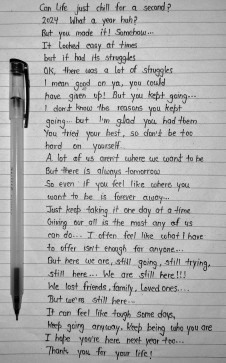 Can life just chill for a second?
2024 What a year huh?
But you made it! Somehow...
It looked easy at times
but it had its struggles
OK, there was a lot of struggles
I mean good on ya, you could
have given up! But you kept going...
I don't know the reasons you kept
going... but I'm glad you had them
You tried your best, so don't be too
hard on yourself
A lot of us aren't where we want to be
But there is always tomorrow
So even if you feel like where you
want to be is forever away...
Just keep taking it one day at a time
Giving our all is the most any of us
can do... I often feel like what I have
to offer isn't enough for anyone...
But here we are, still going, still trying,
still here... We are still here!!!
We lost friends, family, loved ones....
But we're still here...
It can feel like tough some days,
Keep going anyway, Keep being who you are
I hope you're here next year too...
Thank you for your life!